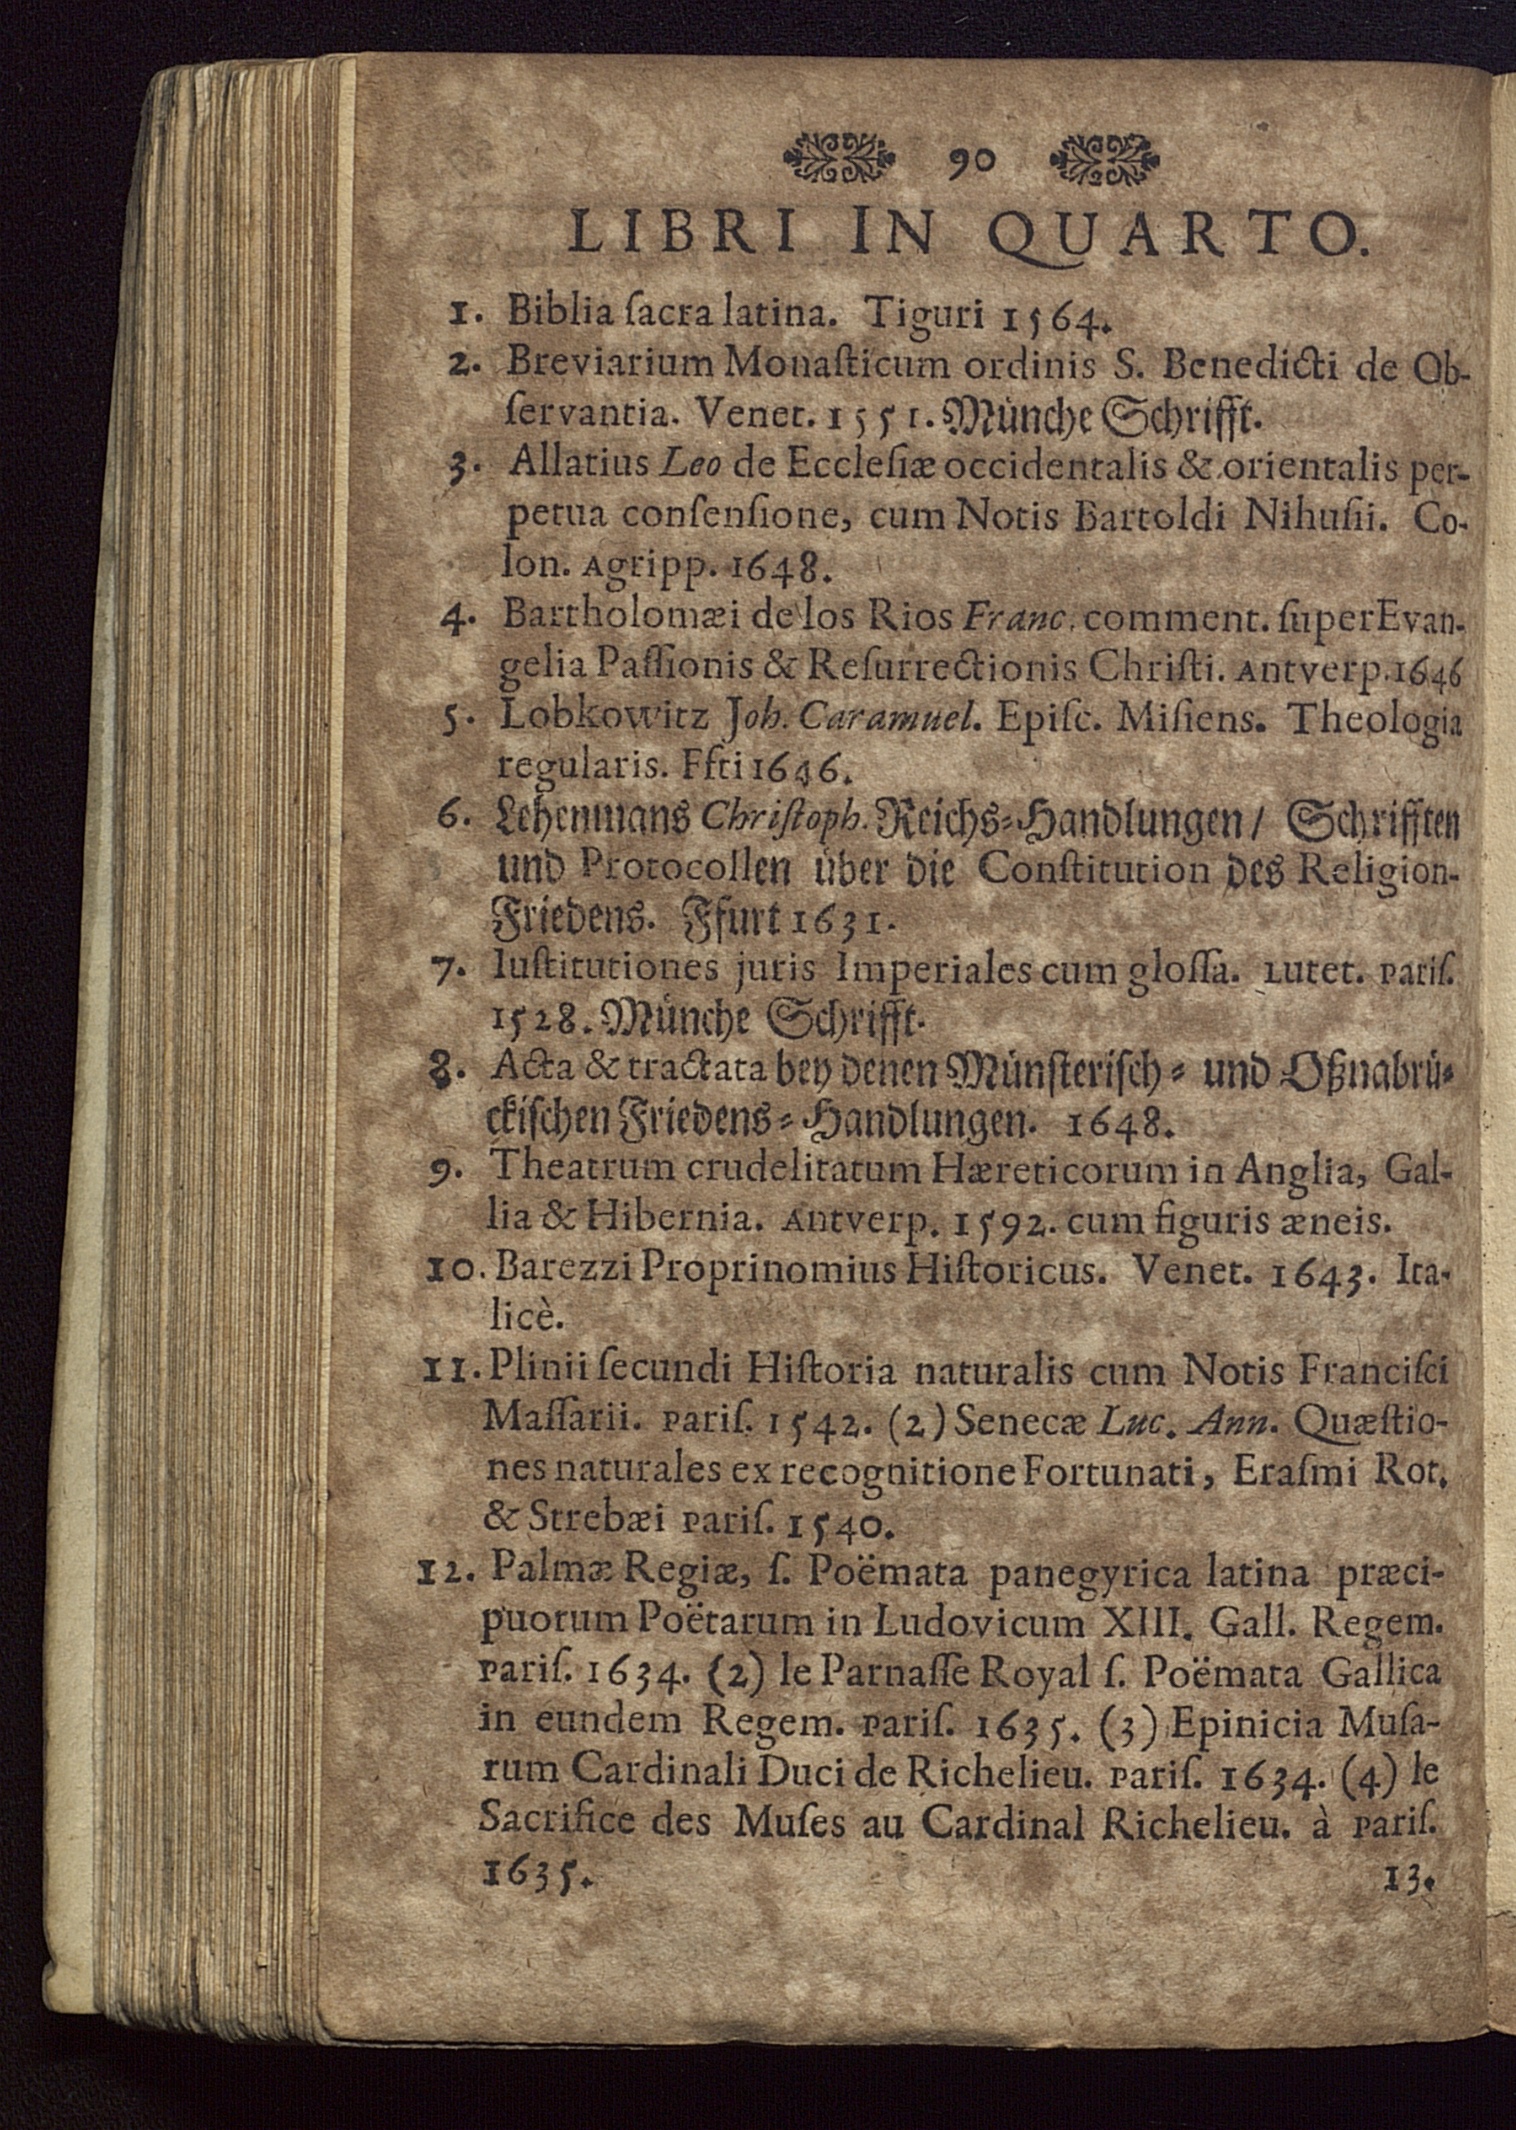 90
LIBRI IN QUARTO.
1. Biblia ſacra latina. Tiguri 1564.
2. Breviarium Monaſticum ordinis S. Benedicti de Ob-
ſervantia. Venet. 1551. Münche Schrifft.
3. Allatius Leo de Eccleſiæ occidentalis & orientalis per-
petua conſenſione, cum Notis Bartoldi Nihuſii. Co-
lon. Agripp. 1648.
4. Bartholomæi de los Rios Franc. comment. ſuper Evan-
gelia Paſſionis & Reſurrectionis Chriſti. Antverp. 1646
5. Lobkowitz Joh. Caramuel. Epiſc. Miſiens. Theologia
regularis. Ffti 1646.
6. Lehenmans Chriſtoph. Reichs-Handlungen / Schrifften
und Protocollen über die Conſtitution des Religion-
Friedens. Ffurt 1631.
7. Iuſtitutiones juris Imperiales cum gloſſa. Lutet. Pariſ.
1528. Münche Schrifft.
8. Acta & tractata bey denen Münſteriſch- und Oßnabrü-
ckiſchen Friedens-Handlungen. 1648.
9. Theatrum crudelitatum Hæreticorum in Anglia, Gal-
lia & Hibernia. Antverp. 1592. cum figuris æneis.
10. Barezzi Proprinomius Hiſtoricus. Venet. 1643. Ita-
licè.
11. Plinii ſecundi Hiſtoria naturalis cum Notis Franciſci
Maſſarii. Pariſ. 1542. (2) Senecæ Luc. Ann. Quæſtio-
nes naturales ex recognitione Fortunati, Eraſmi Rot.
& Strebæi Pariſ. 1540.
12. Palmæ Regiæ, ſ. Poëmata panegyrica latina præci-
puorum Poëtarum in Ludovicum XIII. Gall. Regem.
Pariſ. 1634. (2) le Parnaſſe Royal ſ. Poëmata Gallica
in eundem Regem. Pariſ. 1635. (3) Epinicia Muſa-
rum Cardinali Duci de Richelieu. Pariſ. 1634. (4) le
Sacrifice des Muſes au Cardinal Richelieu. à Pariſ.
1635. 13.